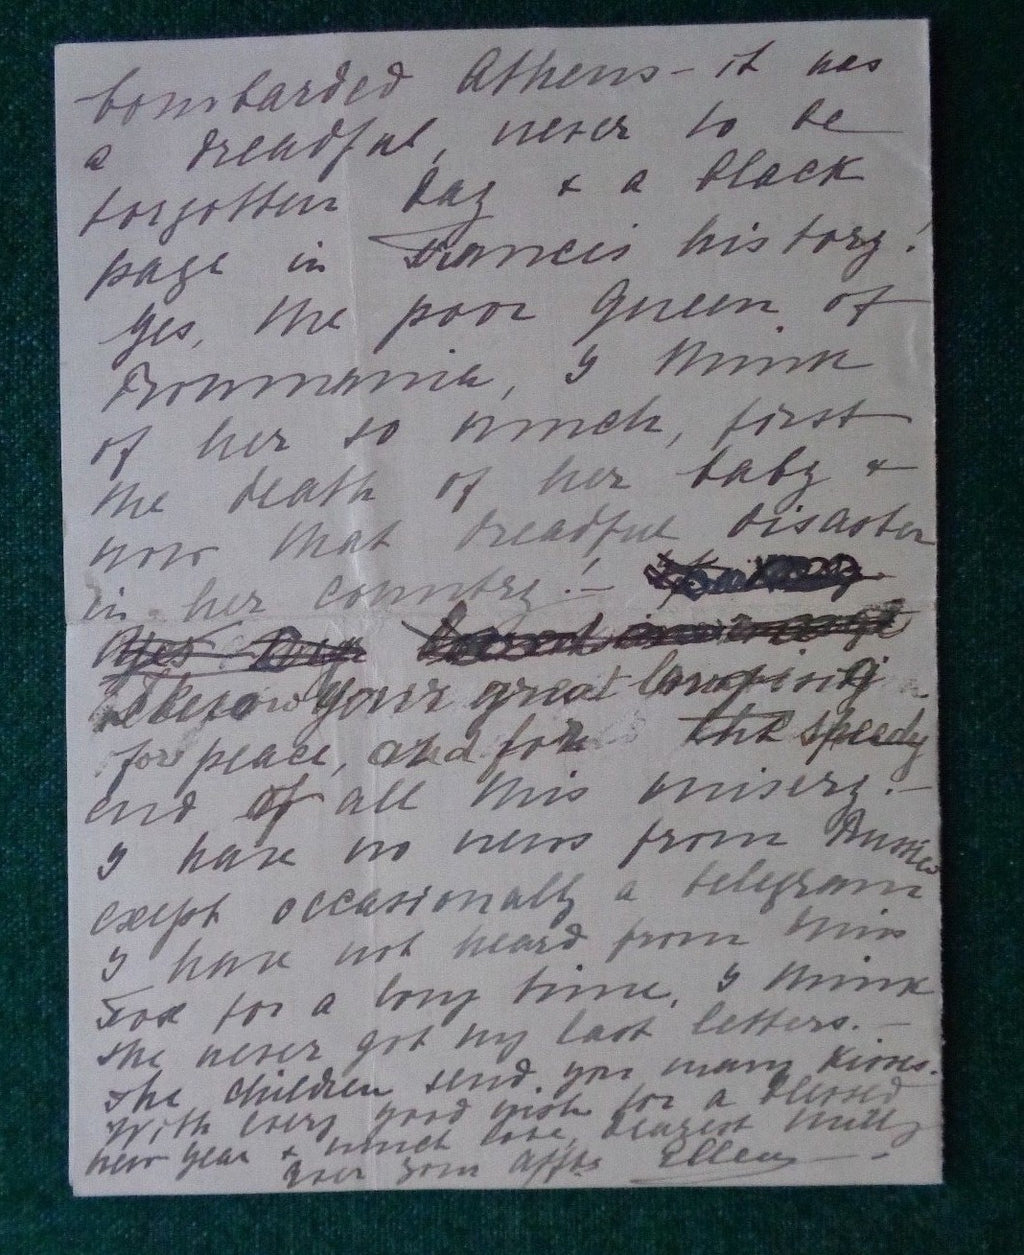 bombarded Athens - it was
a dreadful, never to be
forgotten day & a black
page in Francis history!
Yes, the poor Queen of
Roumania, I think
of her so much, first
the death of her baby &
now that dreadful disaster
in her country! -
know your great longing
for peace, and for the speedy
end of all this misery! -
I have no news from Russia
exept occasionally a telegram
I have not heard from Miss
Fox for a long time, I think
she never got my last letters. -
The children send you many kisses.
With every good wish for a blessed
new year & much love, dearest Milly
ever your affte Ellen